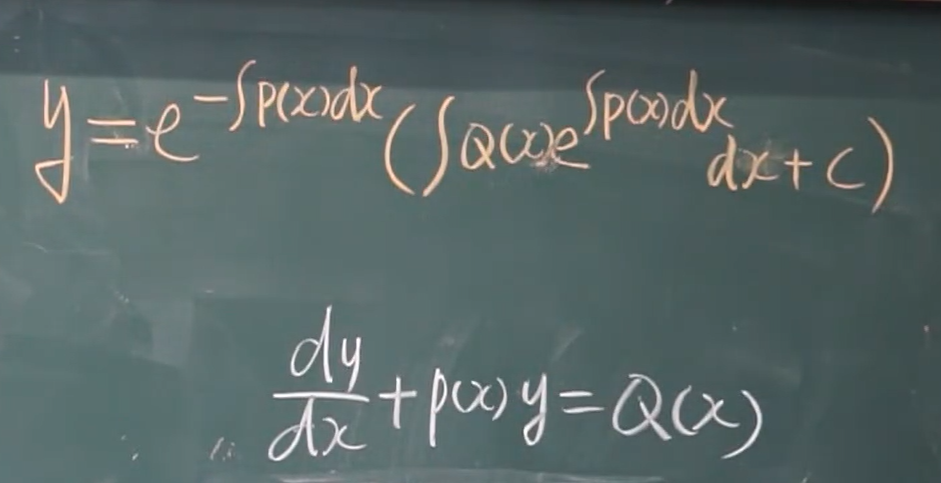 y=e^{-∫p(x)dx}(∫Q(x)e^{∫p(x)dx}dx+C)
dy/dx+p(x)y=Q(x)